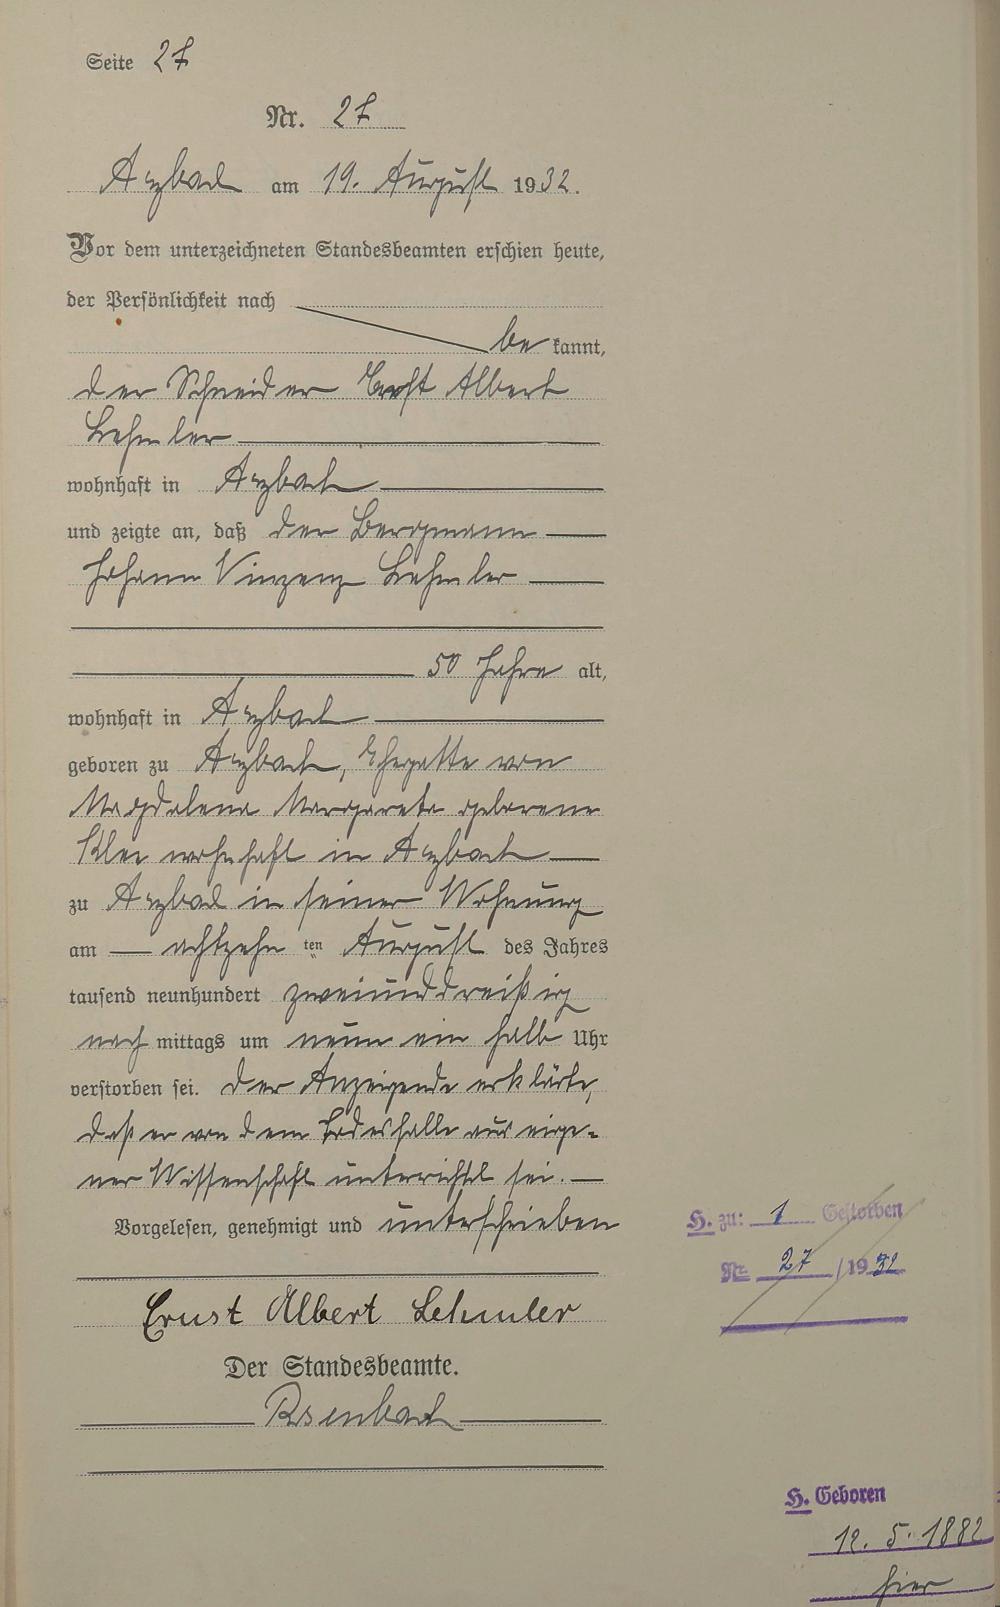 Seite 27
Nr. 27
Arzbach am 19. August 1932.
Vor dem unterzeichneten Standesbeamten erschien heute,
der Persönlichkeit nach
be kannt,
der Schneider Ernst Albert
Lehmler
wohnhaft in Arzbach
und zeigte an, daß der Bergmann
Johann Vinzenz Lehmler
50 Jahre alt,
wohnhaft in Arzbach
geboren zu Arzbach, Ehegatte von
Magdalena Margareta geborene
Klee wohnhaft in Arzbach
zu Arzbach in seiner Wohnung
am achtzehn ten August des Jahres
tausend neunhundert zweiunddreißig
nach mittags um neun ein halb Uhr
verstorben sei. Der Anzeigende erklärte,
daß er von dem Todesfalle aus eige-
ner Wissenschaft unterrichtet sei.
Vorgelesen, genehmigt und unterschrieben
Ernst Albert Lehmler
Der Standesbeamte.
H. zu: 1 Gestorben
Nr. 27 /1932
H. Geboren
12. 5. 1882
hier